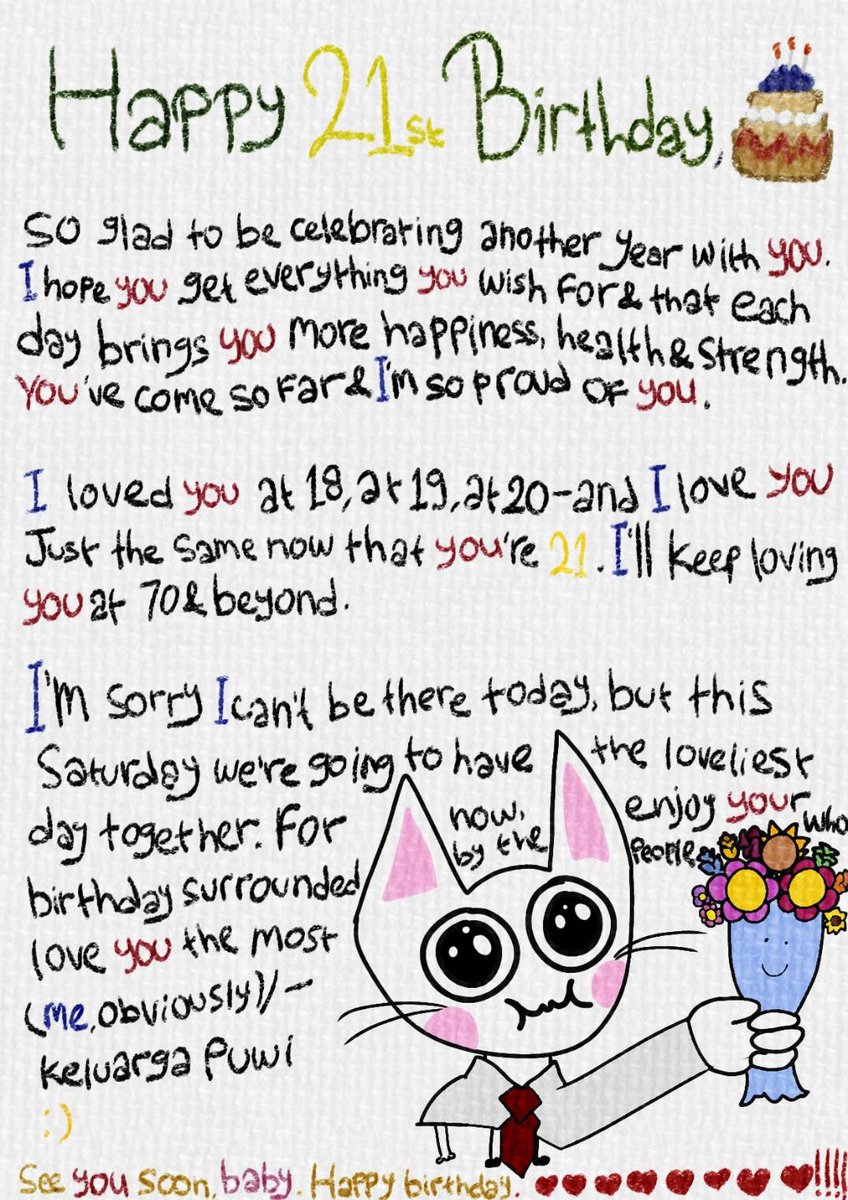 Happy 21st Birthday,
So glad to be celebrating another year with you.
I hope you get everything you wish for & that each
day brings you more happiness, health & strength.
You've come so far & I'm so proud of you.
I loved you at 18, at 19, at 20-and I love you
Just the same now that you're 21. I'll keep loving
you at 70 & beyond.
I'm sorry I can't be there today, but this
Saturday we're going to have the loveliest
day together. For now, enjoy your
birthday surrounded by the people who
love you the most
(me, obviously)/-
keluarga Puwi
:)
See you soon, baby. Happy birthday. ♥♥♥♥♥♥♥♥!!!!